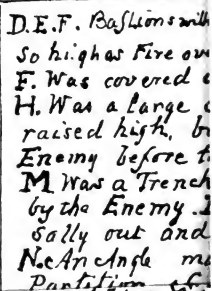 D.E.F. Bastions with
so high as Fire ove
F. Was covered
H. Was a large
raised high, b
Enemy before t
M Was a Trench
by the Enemy.
Sally out and
N. An Angle m
Partition